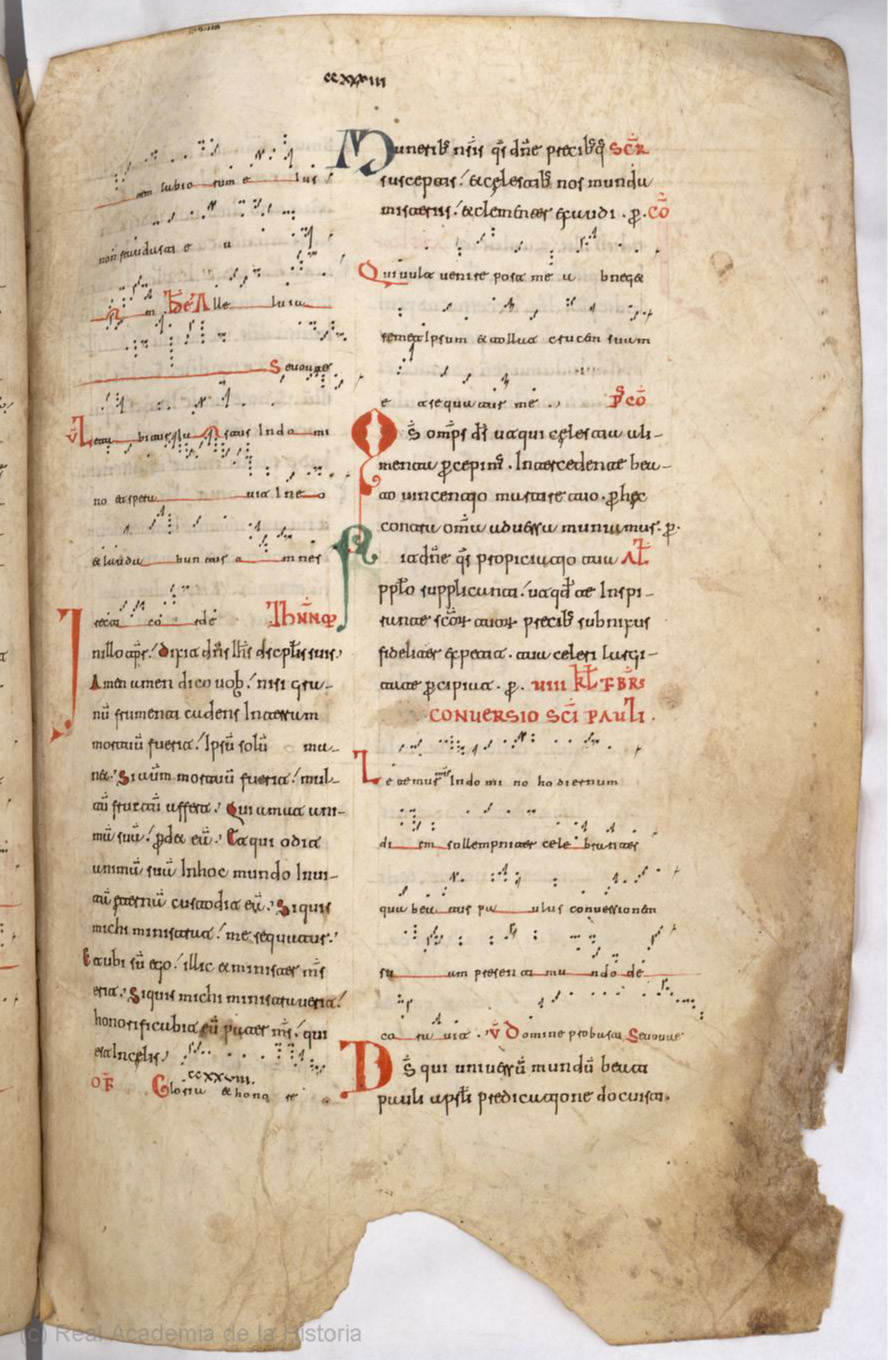 ccxxxiii
non lubio rum e lur
non fraudavit e u
m T̃c̃ Alle luia
Seuouae
V̄ Leta bitur iustus In domi
no et spera uit In e o
& lauda bun tur o mnes
recti cor de Iohannē
In illo tp̄r. dixit dn̄s ih̄s discipl̄is suis.
Amen amen dico uob. nisi gra-
nū frumenti cadens In terram
mortuū fuerit. Ipsū solū ma-
net. Si autem mortuū fuerit. mul-
tū fructū affert. Qui amat ani-
mā suā. perdet eā. Et qui odit
animā suā In hoc mundo In ui-
tā eternā custodit eā. Siquis
michi ministrat. me sequatur.
Et ubi sū ego. illic & minister m̄s
erit. Siquis michi ministrauerit.
honorificabit eū pater m̄s. qui
est In celis.
ccxxviii.
OF̄ Gloria & hono re
Munerib; nr̄is qs̄ dn̄e precib;q; SCR̄
susceptis. & celestib; nos munda
misteriis. & clementer exaudi. p. CŌ
Qui uult uenire post me abneget
semet Ipsum & tollat crucem suam
et sequatur me. P̄CŌ
Qs̄ omp̄s ds̄ ut qui celestia ali-
menta percepim;. Intercedente bea-
to uincentio martire tuo. per hec
contra om̄a aduersa muniamus. p.
Fiat dn̄e qs̄ propiciatio tua AL̄
pplo supplicanti. ut qd̄ te Inspi-
rante scōꝝ tuoꝝ precib; subnixus
fideliter expetit. tua celeri largi-
tate percipiat. p. VIII KL̄ FBR̄S
CONVERSIO SC̄I PAULI.
Letemur ōms In domino hodiernum
diem sollempniter celebrantes
qua beatus paulus conuersionem
suam presenti mundo de
corauit. V̄ Domine probasti Seuouae
Ds̄ qui uniuersū mundū beati
pauli apl̄i predicatione docuisti.
(c) Real Academia de la Historia